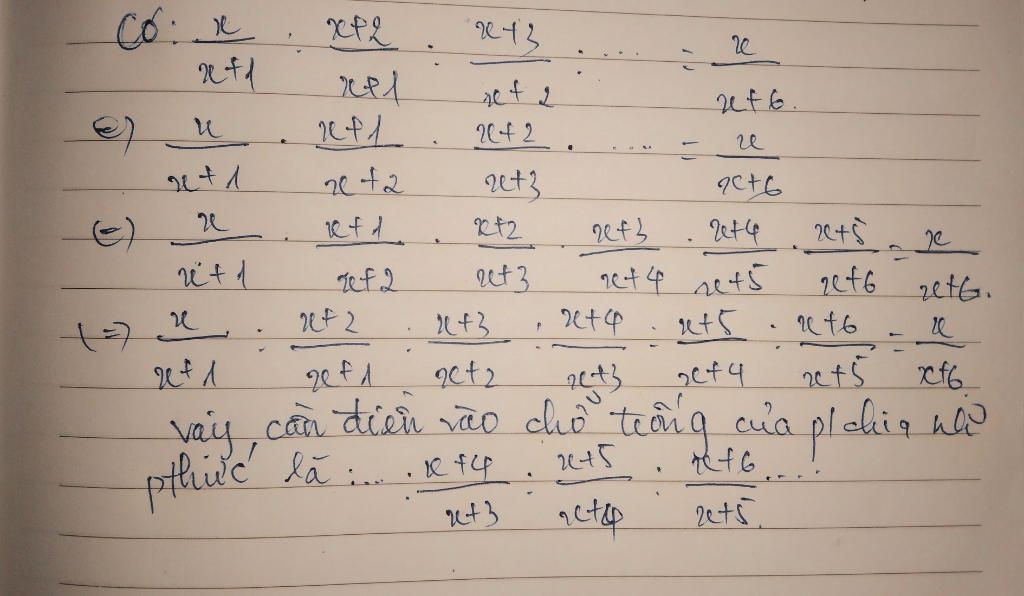 Có: x/x+1 : x+2/x+1 : x+3/x+2 : .... = x/x+6.
<=> x/x+1 . x+1/x+2 . x+2/x+3 . .... = x/x+6
<=> x/x+1 . x+1/x+2 . x+2/x+3 . x+3/x+4 . x+4/x+5 . x+5/x+6 = x/x+6.
<=> x/x+1 : x+2/x+1 : x+3/x+2 : x+4/x+3 : x+5/x+4 : x+6/x+5 = x/x+6
vậy, cần điền vào chỗ trống của p/chia
pthức là :... : x+4/x+3 : x+5/x+4 : x+6/x+5 ....